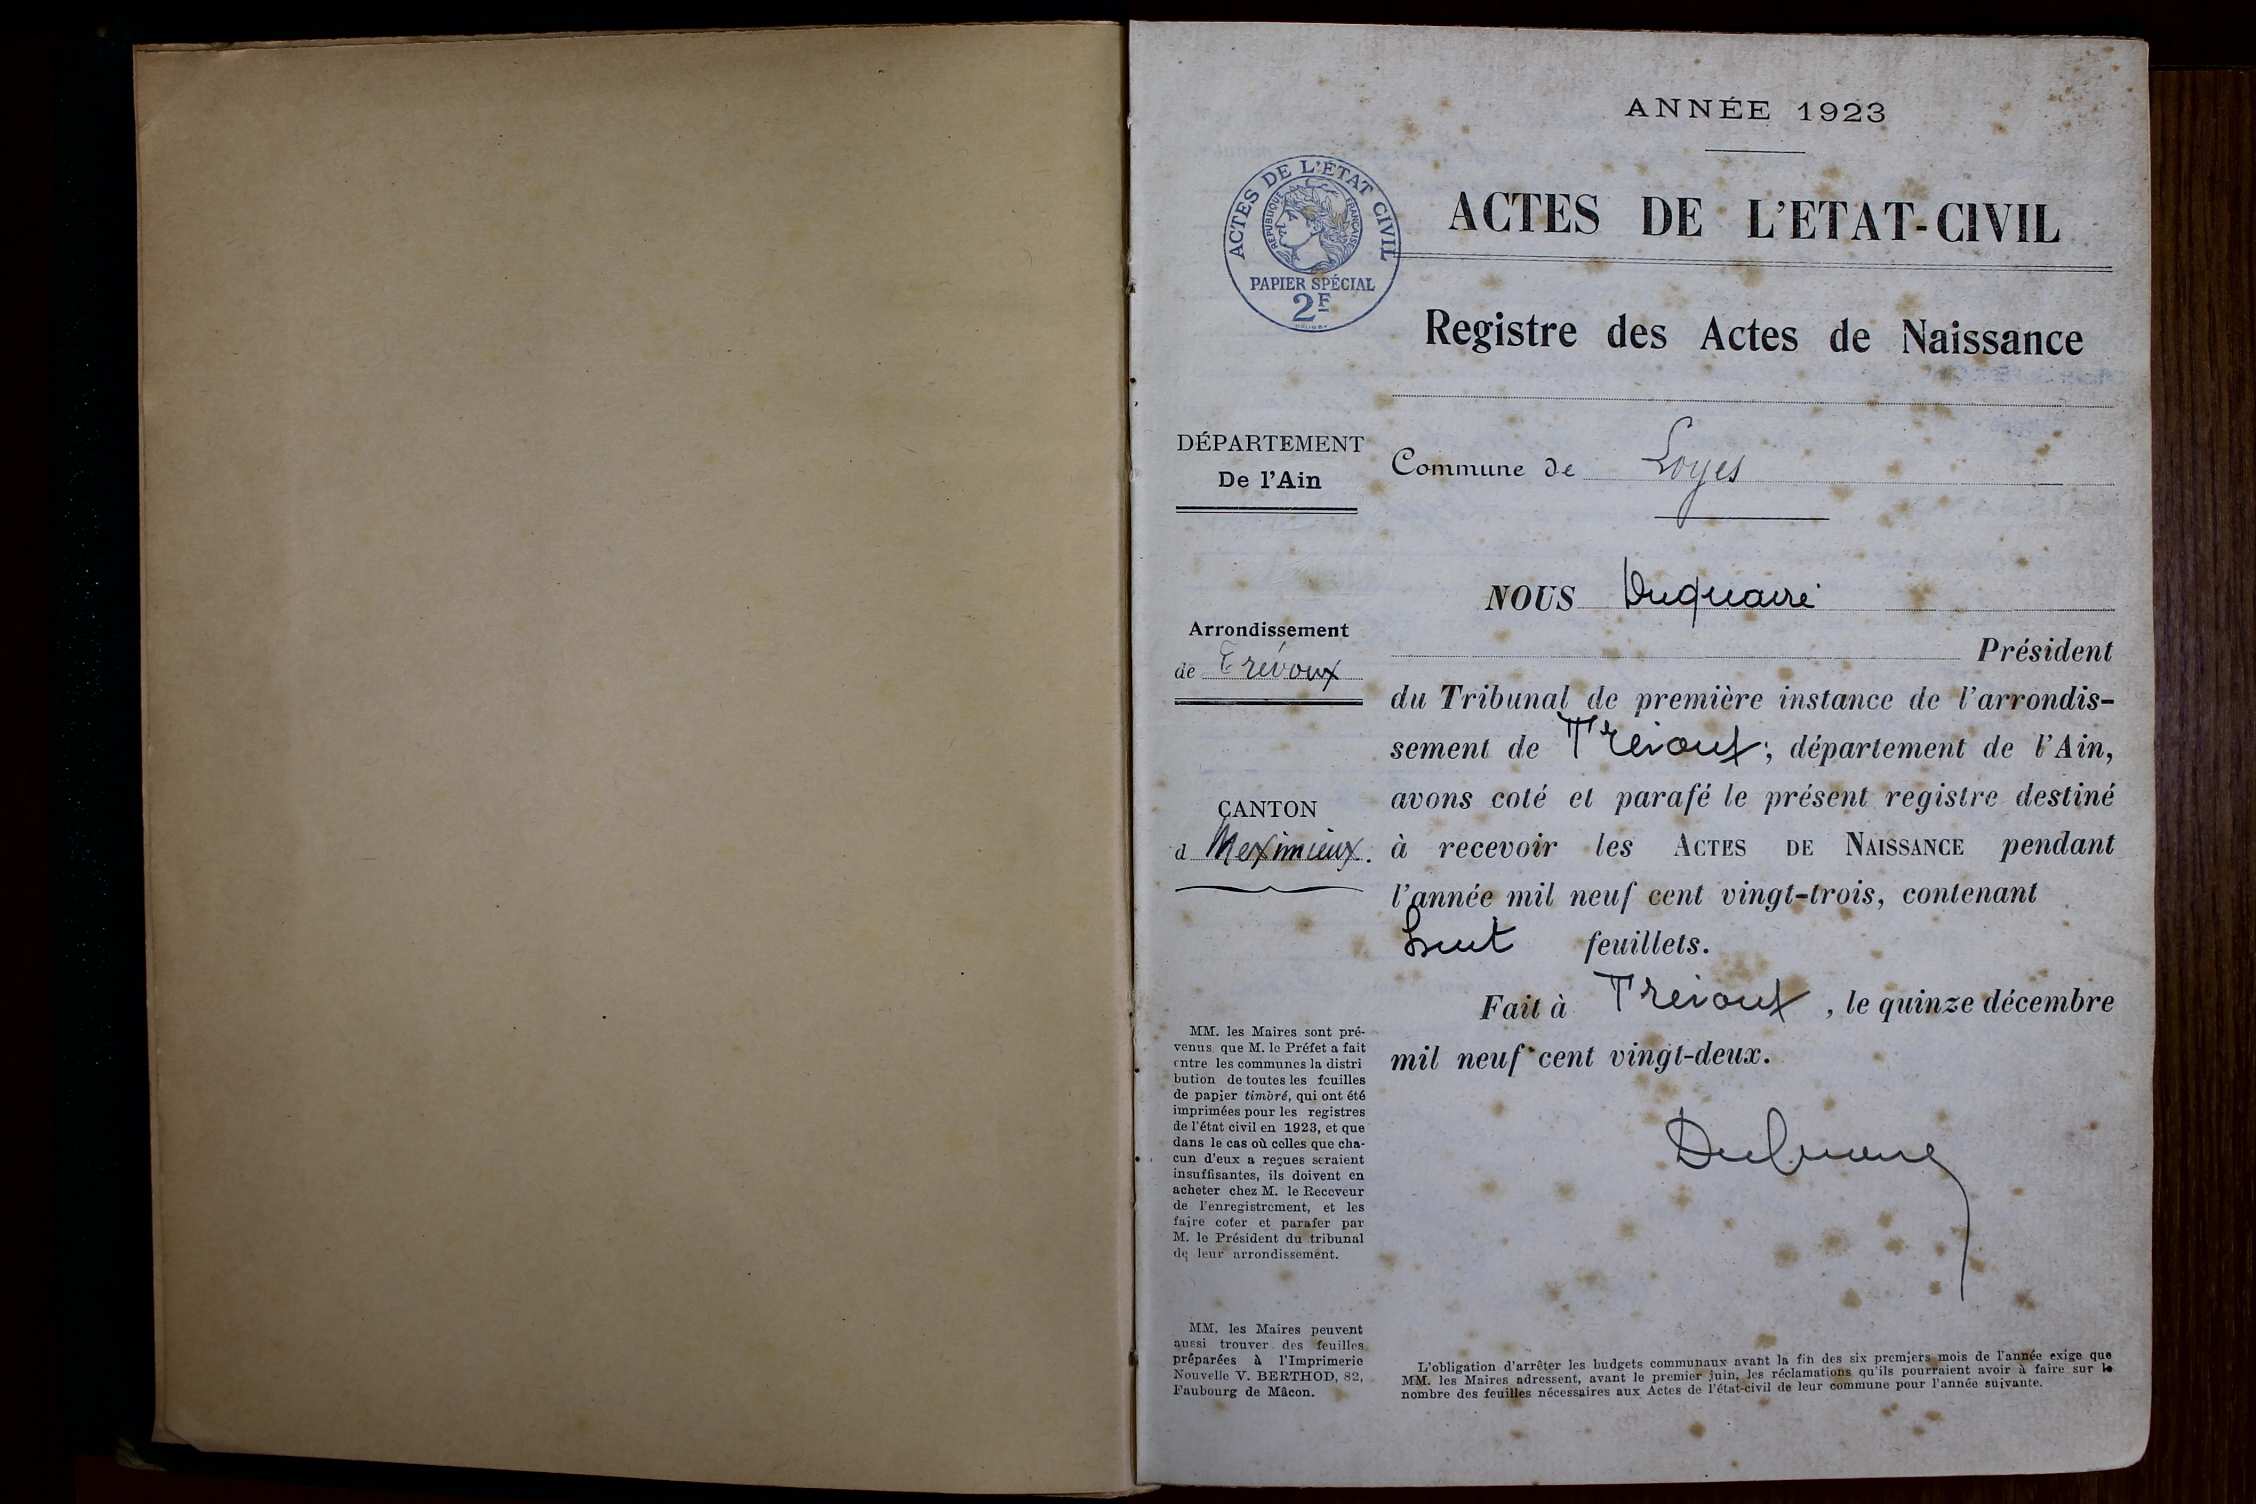 ANNÉE 1923
ACTES DE L'ÉTAT CIVIL
RÉPUBLIQUE FRANÇAISE
PAPIER SPÉCIAL
2F
ACTES DE L'ETAT-CIVIL
Registre des Actes de Naissance
DÉPARTEMENT
De l'Ain
Commune de Loyes
Arrondissement
de Trévoux
CANTON
d Meximieux.
MM. les Maires sont pré-
venus que M. le Préfet a fait
entre les communes la distri
bution de toutes les feuilles
de papier timbré, qui ont été
imprimées pour les registres
de l'état civil en 1923, et que
dans le cas où celles que cha-
cun d'eux a reçues seraient
insuffisantes, ils doivent en
acheter chez M. le Receveur
de l'enregistrement, et les
faire coter et parafer par
M. le Président du tribunal
de leur arrondissement.
MM. les Maires peuvent
aussi trouver des feuilles
préparées à l'Imprimerie
Nouvelle V. BERTHOD, 82,
Faubourg de Mâcon.
NOUS Duquaire
Président
du Tribunal de première instance de l'arrondis-
sement de Trévoux; département de l'Ain,
avons coté et parafé le présent registre destiné
à recevoir les ACTES DE NAISSANCE pendant
l'année mil neuf cent vingt-trois, contenant
huit feuillets.
Fait à Trévoux, le quinze décembre
mil neuf cent vingt-deux.
L'obligation d'arrêter les budgets communaux avant la fin des six premiers mois de l'année exige que
MM. les Maires adressent, avant le premier juin, les réclamations qu'ils pourraient avoir à faire sur le
nombre des feuilles nécessaires aux Actes de l'état-civil de leur commune pour l'année suivante.